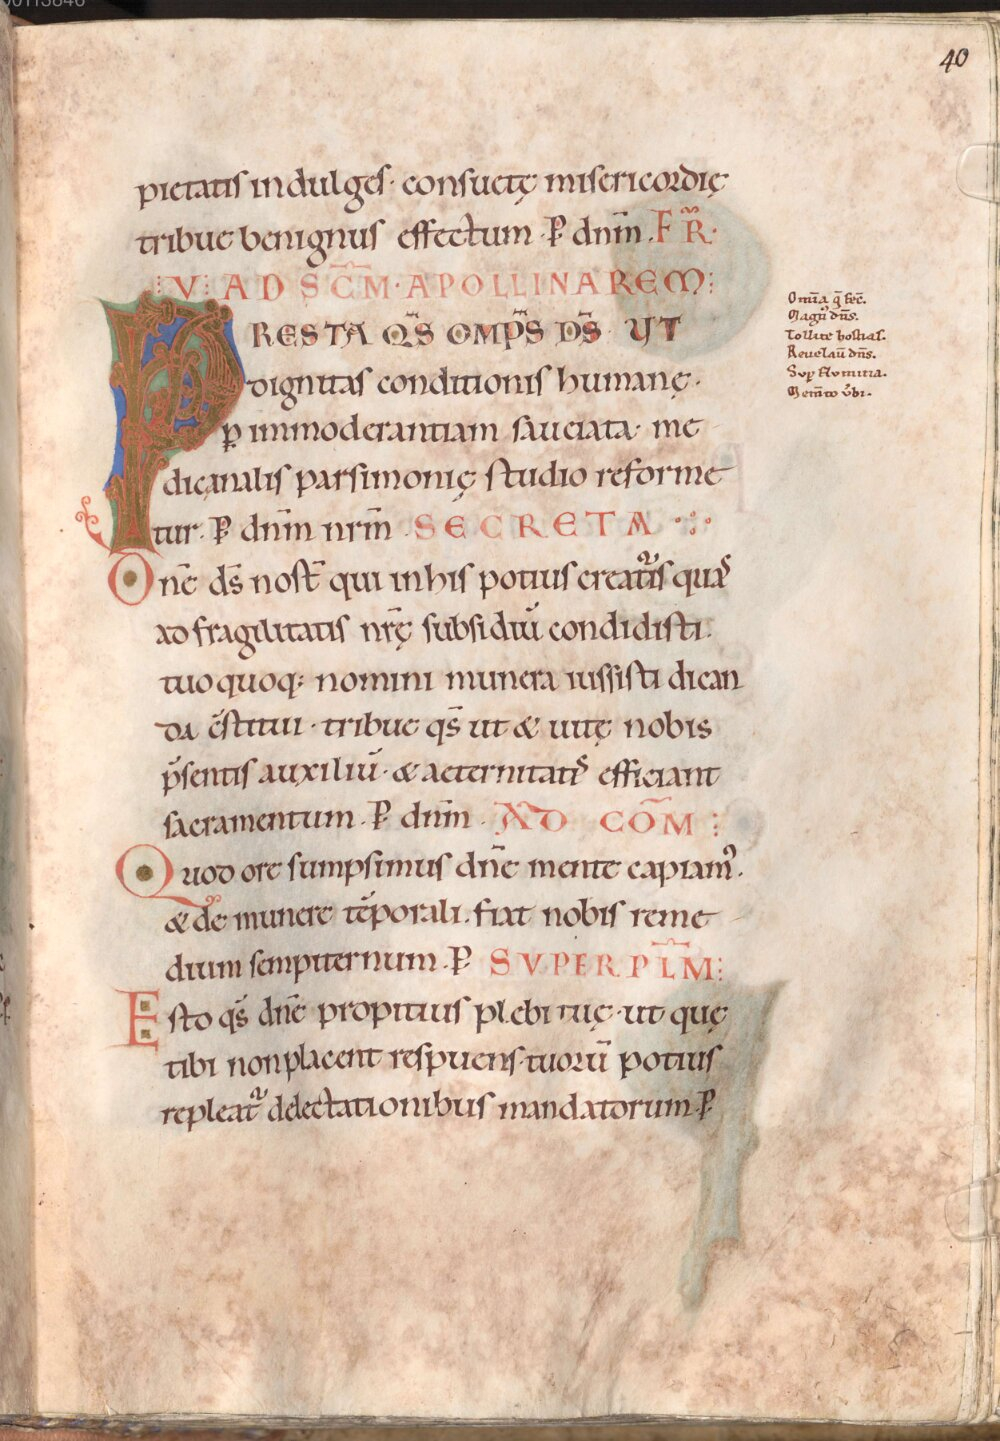 40
pietatis indulges· consuetę misericordię
tribue benignus effectum· P̄ dnm̄. FR̄·
V· AD SC̄M· APOLLINAREM:
PRESTA QS̄ OMPS̄ DS̄ UT
dignitas conditionis humanę·
ꝑ immoderantiam sauciata· me
dicinalis parsimonię studio reforme
tur· P̄ dnm̄ nrm̄ SECRETA
Dn̄e ds̄ nost̄ qui in his potius creatis quas
ad fragilitatis nrę̄ subsidiū condidisti·
tuo quoq: nomini munera iussisti dican
da c̄stitui· tribue qs̄ ut & uitę nobis
p̄sentis auxiliū· & aeternitatis efficiant
sacramentum· P̄ dnm̄ AD COM̄:
Quod ore sumpsimus dn̄e mente capiam᾽·
& de munere tēporali· fiat nobis reme
dium sempiternum· P̄ SUPER PL̄M:
Esto qs̄ dn̄e propitius plebi tuę· ut quę
tibi non placent respuens· tuorū potius
repleat᷑ delectationibus mandatorum· P̄
Om̄ia q̄ fec̄.
Magn̄ dn̄s.
Tollite hostias.
Reuelau dn̄s.
Suꝑ flumina.
Mem̄to ūbi.